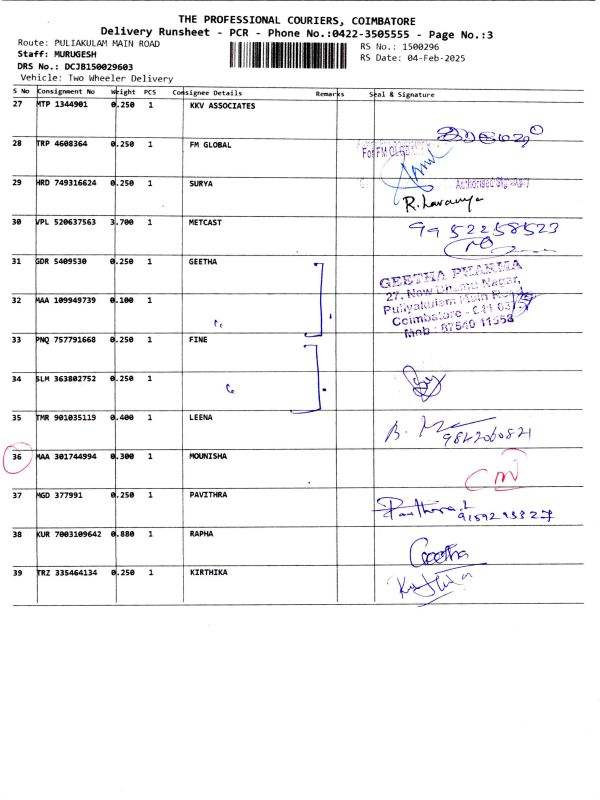 THE PROFESSIONAL COURIERS, COIMBATORE
Delivery Runsheet - PCR - Phone No.:0422-3505555 - Page No.:3
Route: PULIAKULAM MAIN ROAD
RS No.: 1500296
Staff: MURUGESH
RS Date: 04-Feb-2025
DRS No.: DCJB150029603
Vehicle: Two Wheeler Delivery
S No Consignment No Weight PCS Consignee Details Remarks Seal & Signature
27 MTP 1344901 0.250 1 KKV ASSOCIATES
28 TRP 4608364 0.250 1 FM GLOBAL
For FM GLOBAL
29 HRD 749316624 0.250 1 SURYA
Authorised Signatory
R. Lavanya
30 VPL 520637563 3.700 1 METCAST
9952258523
31 GDR 5409530 0.250 1 GEETHA
GEETHA PHARMA
27, New Dhamu Nagar,
Puliyakulam Main Road,
32 MAA 109949739 0.100 1
Coimbatore - 641 037
Mob : 87540 11553
33 PNQ 757791668 0.250 1 FINE
34 SLM 363802752 0.250 1
35 TMR 901035119 0.400 1 LEENA
B.
9842060821
36 MAA 301744994 0.300 1 MOUNISHA
37 MGD 377991 0.250 1 PAVITHRA
Pavithra
9159293327
38 KUR 7003109642 0.880 1 RAPHA
Geetha
39 TRZ 335464134 0.250 1 KIRTHIKA